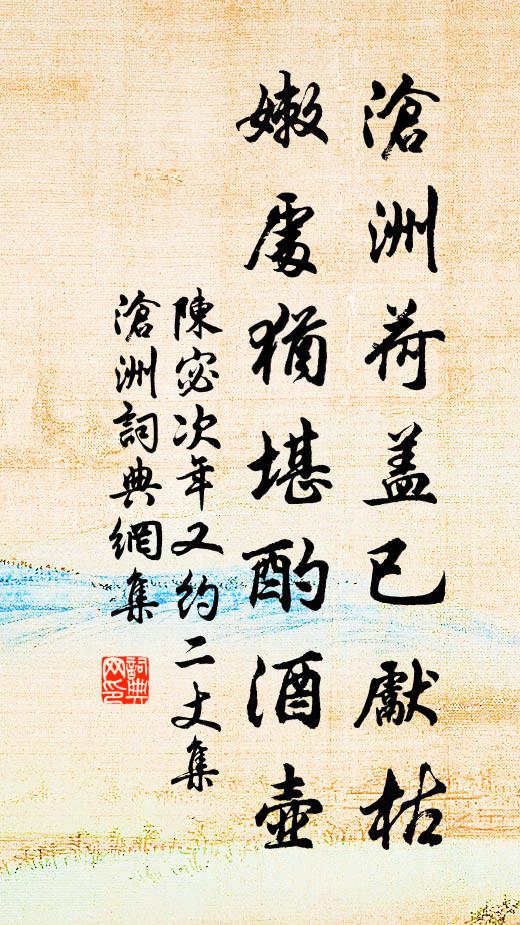 滄洲荷盖已獻枯
嫩處猶堪酌酒壺
陳宓次年又約二丈集
滄洲詞典網集
詞典
网印